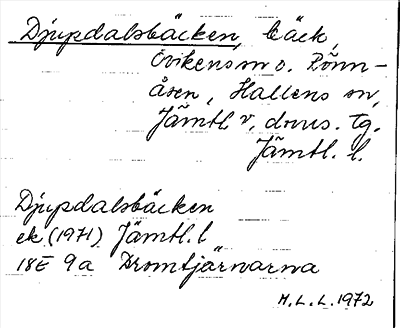 Djupdalsbäcken, bäck,
Ovikens sn o. Rönn-
åsen, Hallens sn,
Jämtl v, doms. tg.
Jämtl. l.
Djupdalsbäcken
ek. (1971) Jämtl. l
18E 9a Dromtjärnarna
M.L.L. 1972